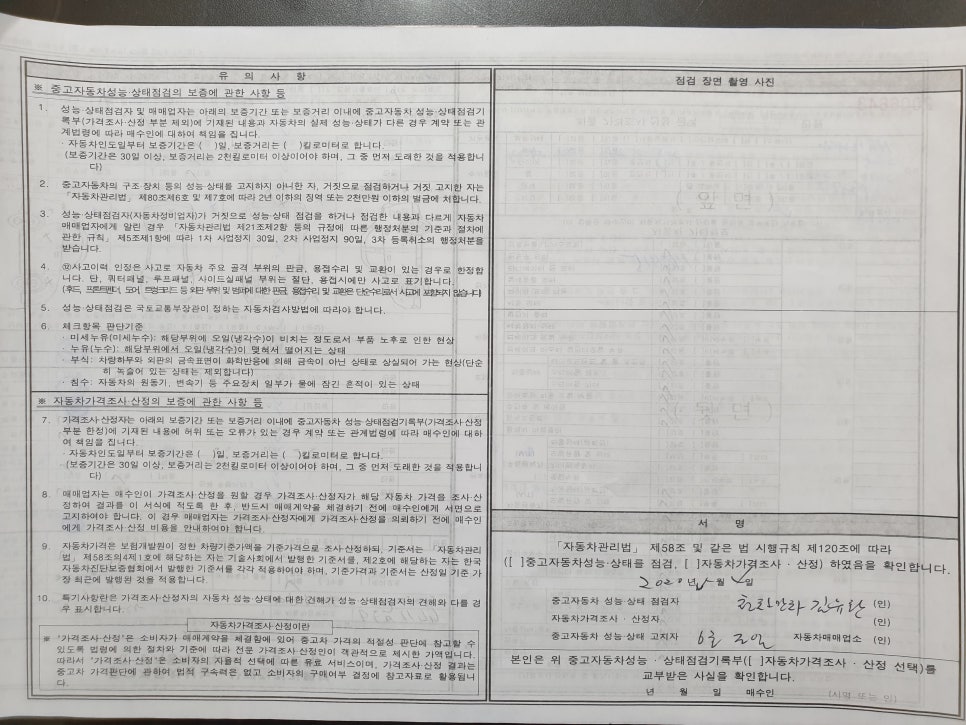 유 의 사 항
※ 중고자동차성능·상태점검의 보증에 관한 사항 등
1. 성능·상태점검자 및 매매업자는 아래의 보증기간 또는 보증거리 이내에 중고자동차 성능·상태점검기
록부(가격조사·산정 부분 제외)에 기재된 내용과 자동차의 실제 성능·상태가 다른 경우 계약 또는 관
계법령에 따라 매수인에 대하여 책임을 집니다.
· 자동차인도일부터 보증기간은 ( )일, 보증거리는 ( )킬로미터로 합니다.
(보증기간은 30일 이상, 보증거리는 2천킬로미터 이상이어야 하며, 그 중 먼저 도래한 것을 적용합니
다)
2. 중고자동차의 구조·장치 등의 성능·상태를 고지하지 아니한 자, 거짓으로 점검하거나 거짓 고지한 자는
「자동차관리법」 제80조제6호 및 제7호에 따라 2년 이하의 징역 또는 2천만원 이하의 벌금에 처합니다.
3. 성능·상태점검자(자동차정비업자)가 거짓으로 성능·상태 점검을 하거나 점검한 내용과 다르게 자동차
매매업자에게 알린 경우 「자동차관리법 제21조제2항 등의 규정에 따른 행정처분의 기준과 절차에
관한 규칙」 제5조제1항에 따라 1차 사업정지 30일, 2차 사업정지 90일, 3차 등록취소의 행정처분을
받습니다.
4. ⑫사고이력 인정은 사고로 자동차 주요 골격 부위의 판금, 용접수리 및 교환이 있는 경우로 한정합
니다. 단, 쿼터패널, 루프패널, 사이드실패널 부위는 절단, 용접시에만 사고로 표기합니다.
(후드, 프론트펜더, 도어, 트렁크리드 등 외판 부위 및 범퍼에 대한 판금, 용접수리 및 교환은 단순수리로서 사고에 포함되지 않습니다)
5. 성능·상태점검은 국토교통부장관이 정하는 자동차검사방법에 따라야 합니다.
6. 체크항목 판단기준
· 미세누유(미세누수): 해당부위에 오일(냉각수)이 비치는 정도로서 부품 노후로 인한 현상
· 누유(누수): 해당부위에서 오일(냉각수)이 맺혀서 떨어지는 상태
· 부식: 차량하부와 외판의 금속표면이 화학반응에 의해 금속이 아닌 상태로 상실되어 가는 현상(단순
히 녹슬어 있는 상태는 제외합니다)
· 침수: 자동차의 원동기, 변속기 등 주요장치 일부가 물에 잠긴 흔적이 있는 상태
※ 자동차가격조사·산정의 보증에 관한 사항 등
7. 가격조사·산정자는 아래의 보증기간 또는 보증거리 이내에 중고자동차 성능·상태점검기록부(가격조사·산정
부분 한정)에 기재된 내용에 허위 또는 오류가 있는 경우 계약 또는 관계법령에 따라 매수인에 대하
여 책임을 집니다.
· 자동차인도일부터 보증기간은 ( )일, 보증거리는 ( )킬로미터로 합니다.
· (보증기간은 30일 이상, 보증거리는 2천킬로미터 이상이어야 하며, 그 중 먼저 도래한 것을 적용합니
다)
8. 매매업자는 매수인이 가격조사·산정을 원할 경우 가격조사·산정자가 해당 자동차 가격을 조사·산
정하여 결과를 이 서식에 적도록 한 후, 반드시 매매계약을 체결하기 전에 매수인에게 서면으로
고지하여야 합니다. 이 경우 매매업자는 가격조사·산정자에게 가격조사·산정을 의뢰하기 전에 매수인
에게 가격조사·산정 비용을 안내하여야 합니다.
9. 자동차가격은 보험개발원이 정한 차량기준가액을 기준가격으로 조사·산정하되, 기준서는 「자동차관리
법」 제58조의4제1호에 해당하는 자는 기술사회에서 발행한 기준서를, 제2호에 해당하는 자는 한국
자동차진단보증협회에서 발행한 기준서를 각각 적용하여야 하며, 기준가격과 기준서는 산정일 기준 가
장 최근에 발행된 것을 적용합니다.
10. 특기사항란은 가격조사·산정자의 자동차 성능·상태에 대한 견해가 성능·상태점검자의 견해와 다를 경
우 표시합니다.
자동차가격조사·산정이란
※ "가격조사·산정"은 소비자가 매매계약을 체결함에 있어 중고차 가격의 적절성 판단에 참고할 수
있도록 법령에 의한 절차와 기준에 따라 전문 가격조사·산정인이 객관적으로 제시한 가액입니다.
따라서 "가격조사·산정"은 소비자의 자율적 선택에 따른 유료 서비스이며, 가격조사·산정 결과는
중고차 가격판단에 관하여 법적 구속력은 없고 소비자의 구매여부 결정에 참고자료로 활용됩니
다.
점검 장면 촬영 사진
서 명
「자동차관리법」 제58조 및 같은 법 시행규칙 제120조에 따라
([ ]중고자동차성능·상태를 점검, [ ]자동차가격조사 · 산정) 하였음을 확인합니다.
년 월 일
중고자동차 성능·상태 점검자 (인)
자동차가격조사 · 산정자 (인)
중고자동차 성능·상태 고지자 자동차매매업소 (인)
본인은 위 중고자동차성능 · 상태점검기록부([ ]자동차가격조사 · 산정 선택)를
교부받은 사실을 확인합니다.
년 월 일 매수인 (서명 또는 인)